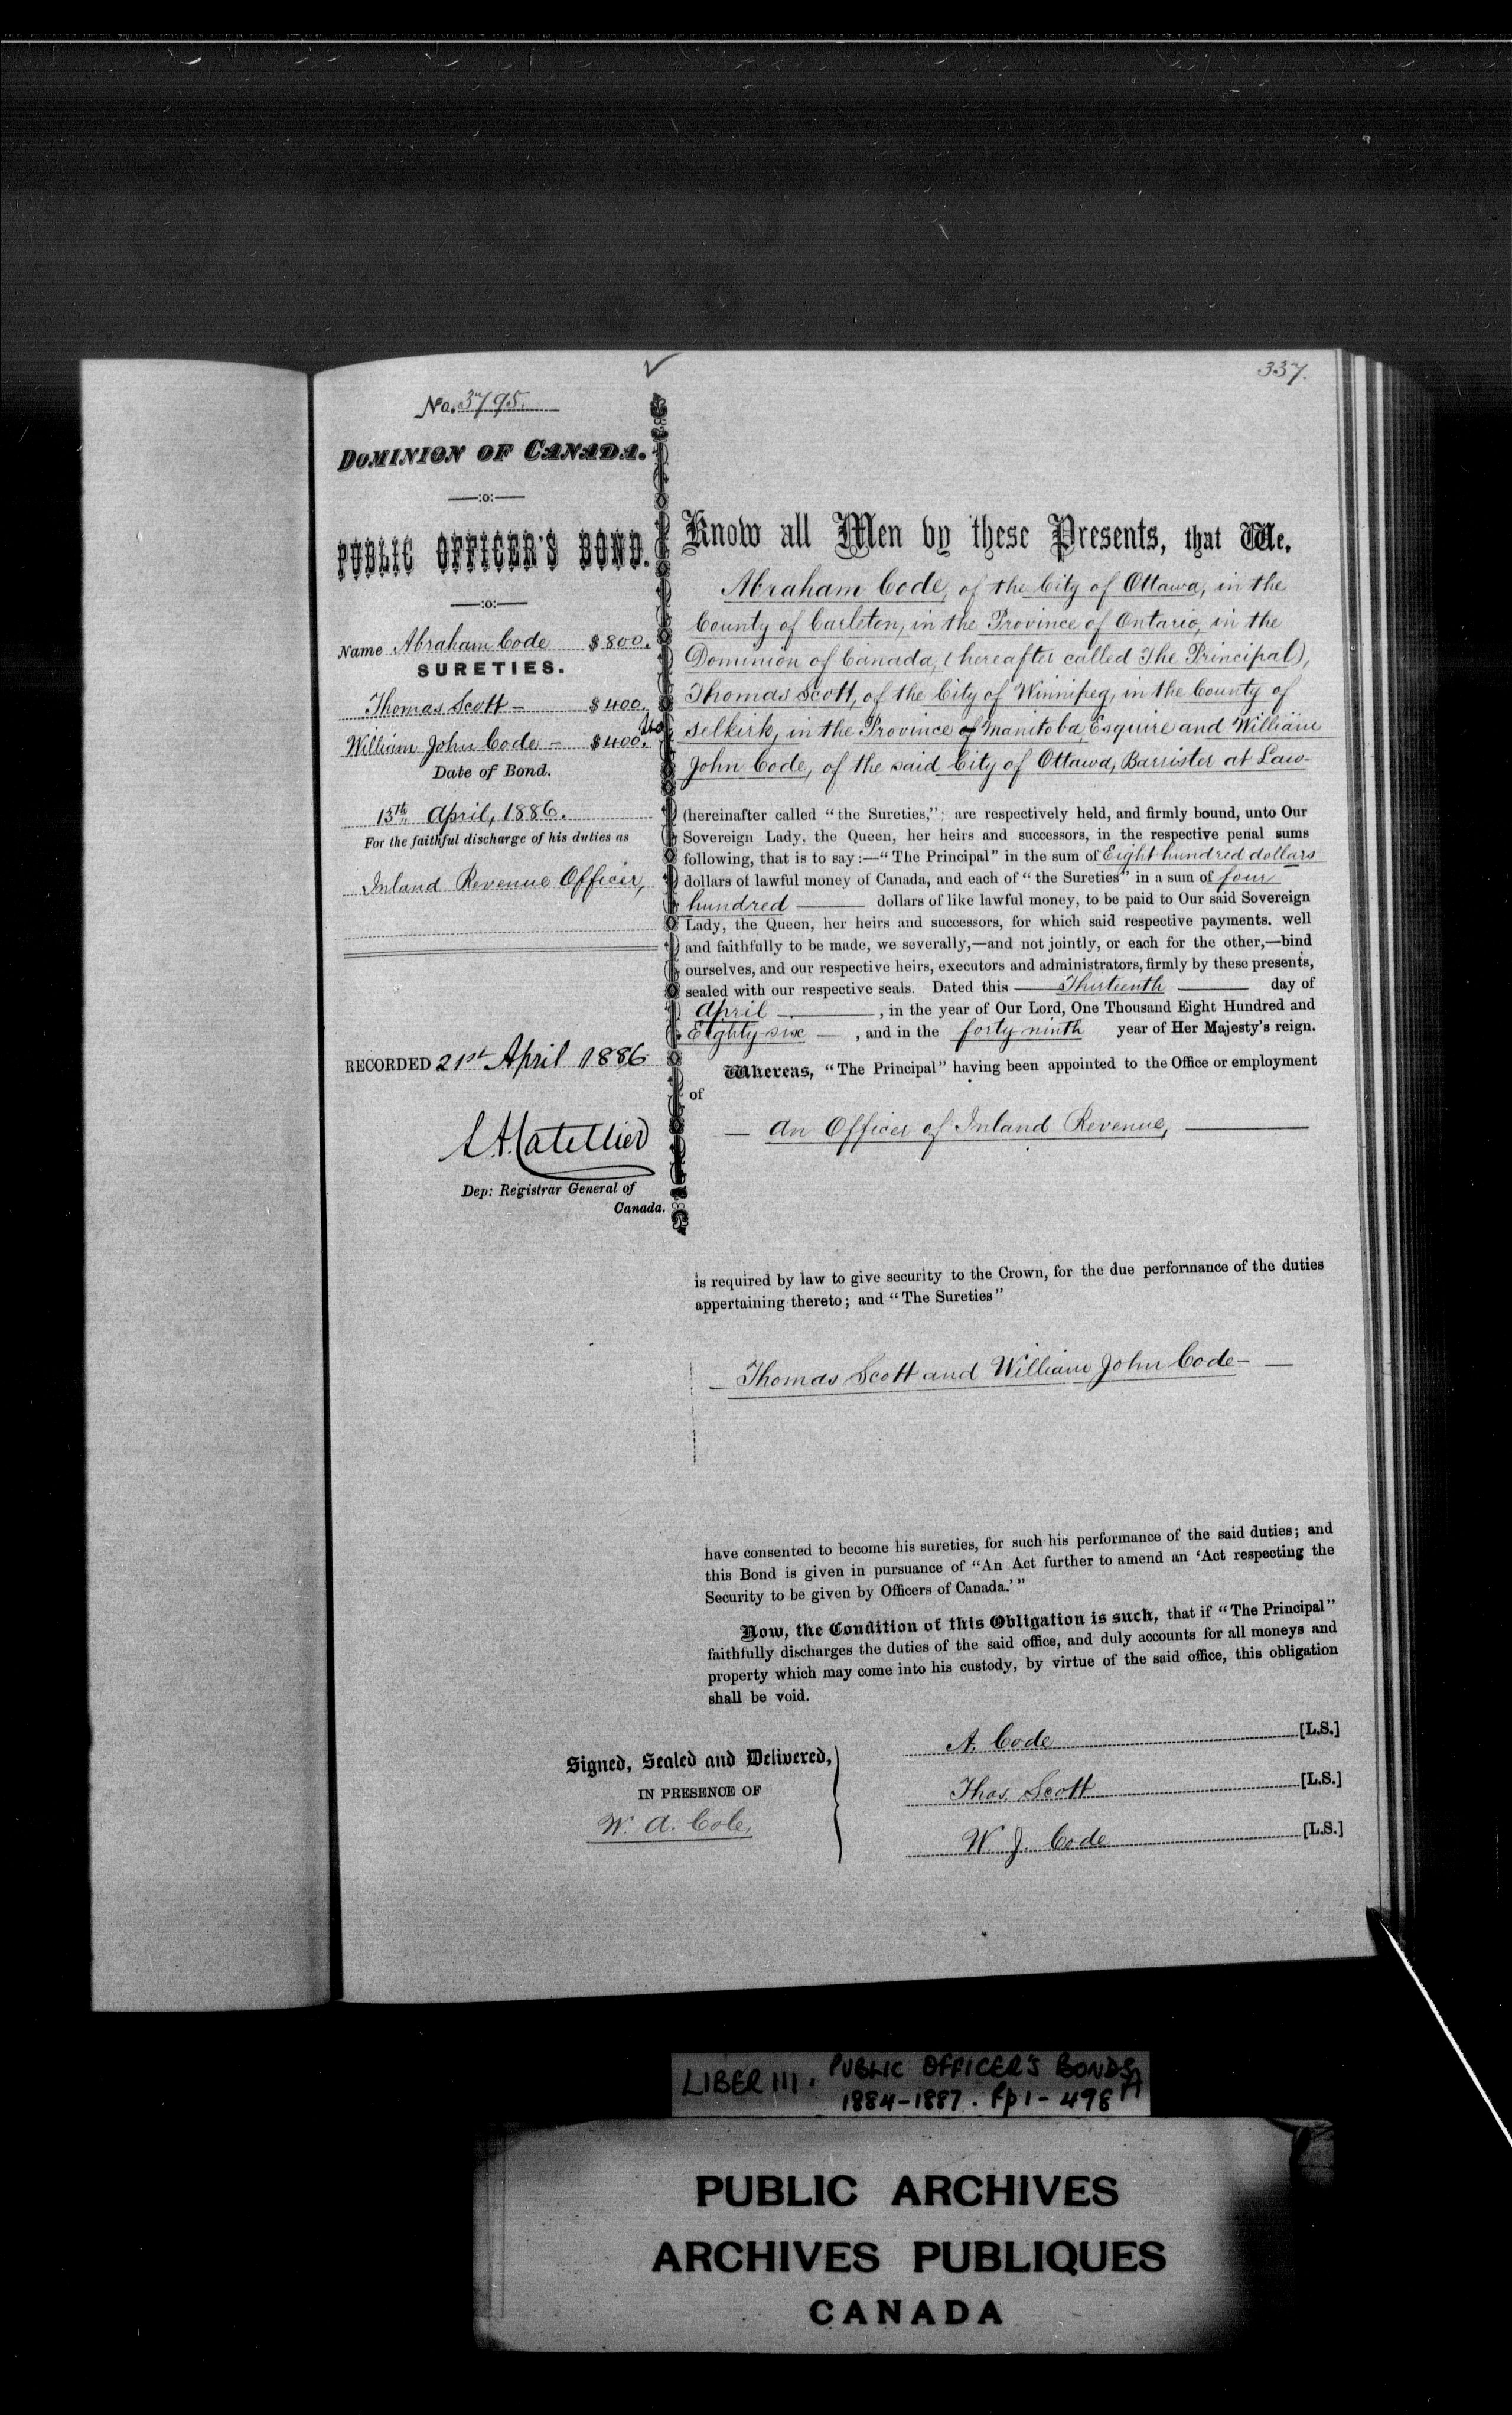 337.
No. 3795.
DOMINION OF CANADA.
—:o:—
PUBLIC OFFICER'S BOND.
—:o:—
Name Abraham Code $800.
SURETIES.
Thomas Scott – $400.
William John Code – $400.
Date of Bond.
13th April, 1886.
For the faithful discharge of his duties as
Inland Revenue Officer,
RECORDED 21st April 1886
Dep: Registrar General of
Canada.
Know all Men by these Presents, that We,
Abraham Code, of the City of Ottawa, in the
County of Carleton, in the Province of Ontario, in the
Dominion of Canada, (hereafter called The Principal),
Thomas Scott, of the City of Winnipeg, in the County of
Selkirk, in the Province of Manitoba, Esquire and William
John Code, of the said City of Ottawa, Barrister at Law-
(hereinafter called "the Sureties,": are respectively held, and firmly bound, unto Our
Sovereign Lady, the Queen, her heirs and successors, in the respective penal sums
following, that is to say:—"The Principal" in the sum of Eight hundred dollars
dollars of lawful money of Canada, and each of "the Sureties" in a sum of four
hundred — dollars of like lawful money, to be paid to Our said Sovereign
Lady, the Queen, her heirs and successors, for which said respective payments. well
and faithfully to be made, we severally,—and not jointly, or each for the other,—bind
ourselves, and our respective heirs, executors and administrators, firmly by these presents,
sealed with our respective seals. Dated this — Thirteenth — day of
April —, in the year of Our Lord, One Thousand Eight Hundred and
Eighty six —, and in the forty ninth year of Her Majesty's reign.
Whereas, "The Principal" having been appointed to the Office or employment
of
— an Officer of Inland Revenue, —
is required by law to give security to the Crown, for the due performance of the duties
appertaining thereto; and "The Sureties"
— Thomas Scott and William John Code – —
have consented to become his sureties, for such his performance of the said duties; and
this Bond is given in pursuance of "An Act further to amend an 'Act respecting the
Security to be given by Officers of Canada.'"
Now, the Condition of this Obligation is such, that if "The Principal"
faithfully discharges the duties of the said office, and duly accounts for all moneys and
property which may come into his custody, by virtue of the said office, this obligation
shall be void.
Signed, Sealed and Delivered,
IN PRESENCE OF
W. A. Cole,
A. Code [L.S.]
Thos. Scott [L.S.]
W. J. Code [L.S.]
LIBER 111. PUBLIC OFFICER'S BONDS
1884-1887. fp 1-498
PUBLIC ARCHIVES
ARCHIVES PUBLIQUES
CANADA